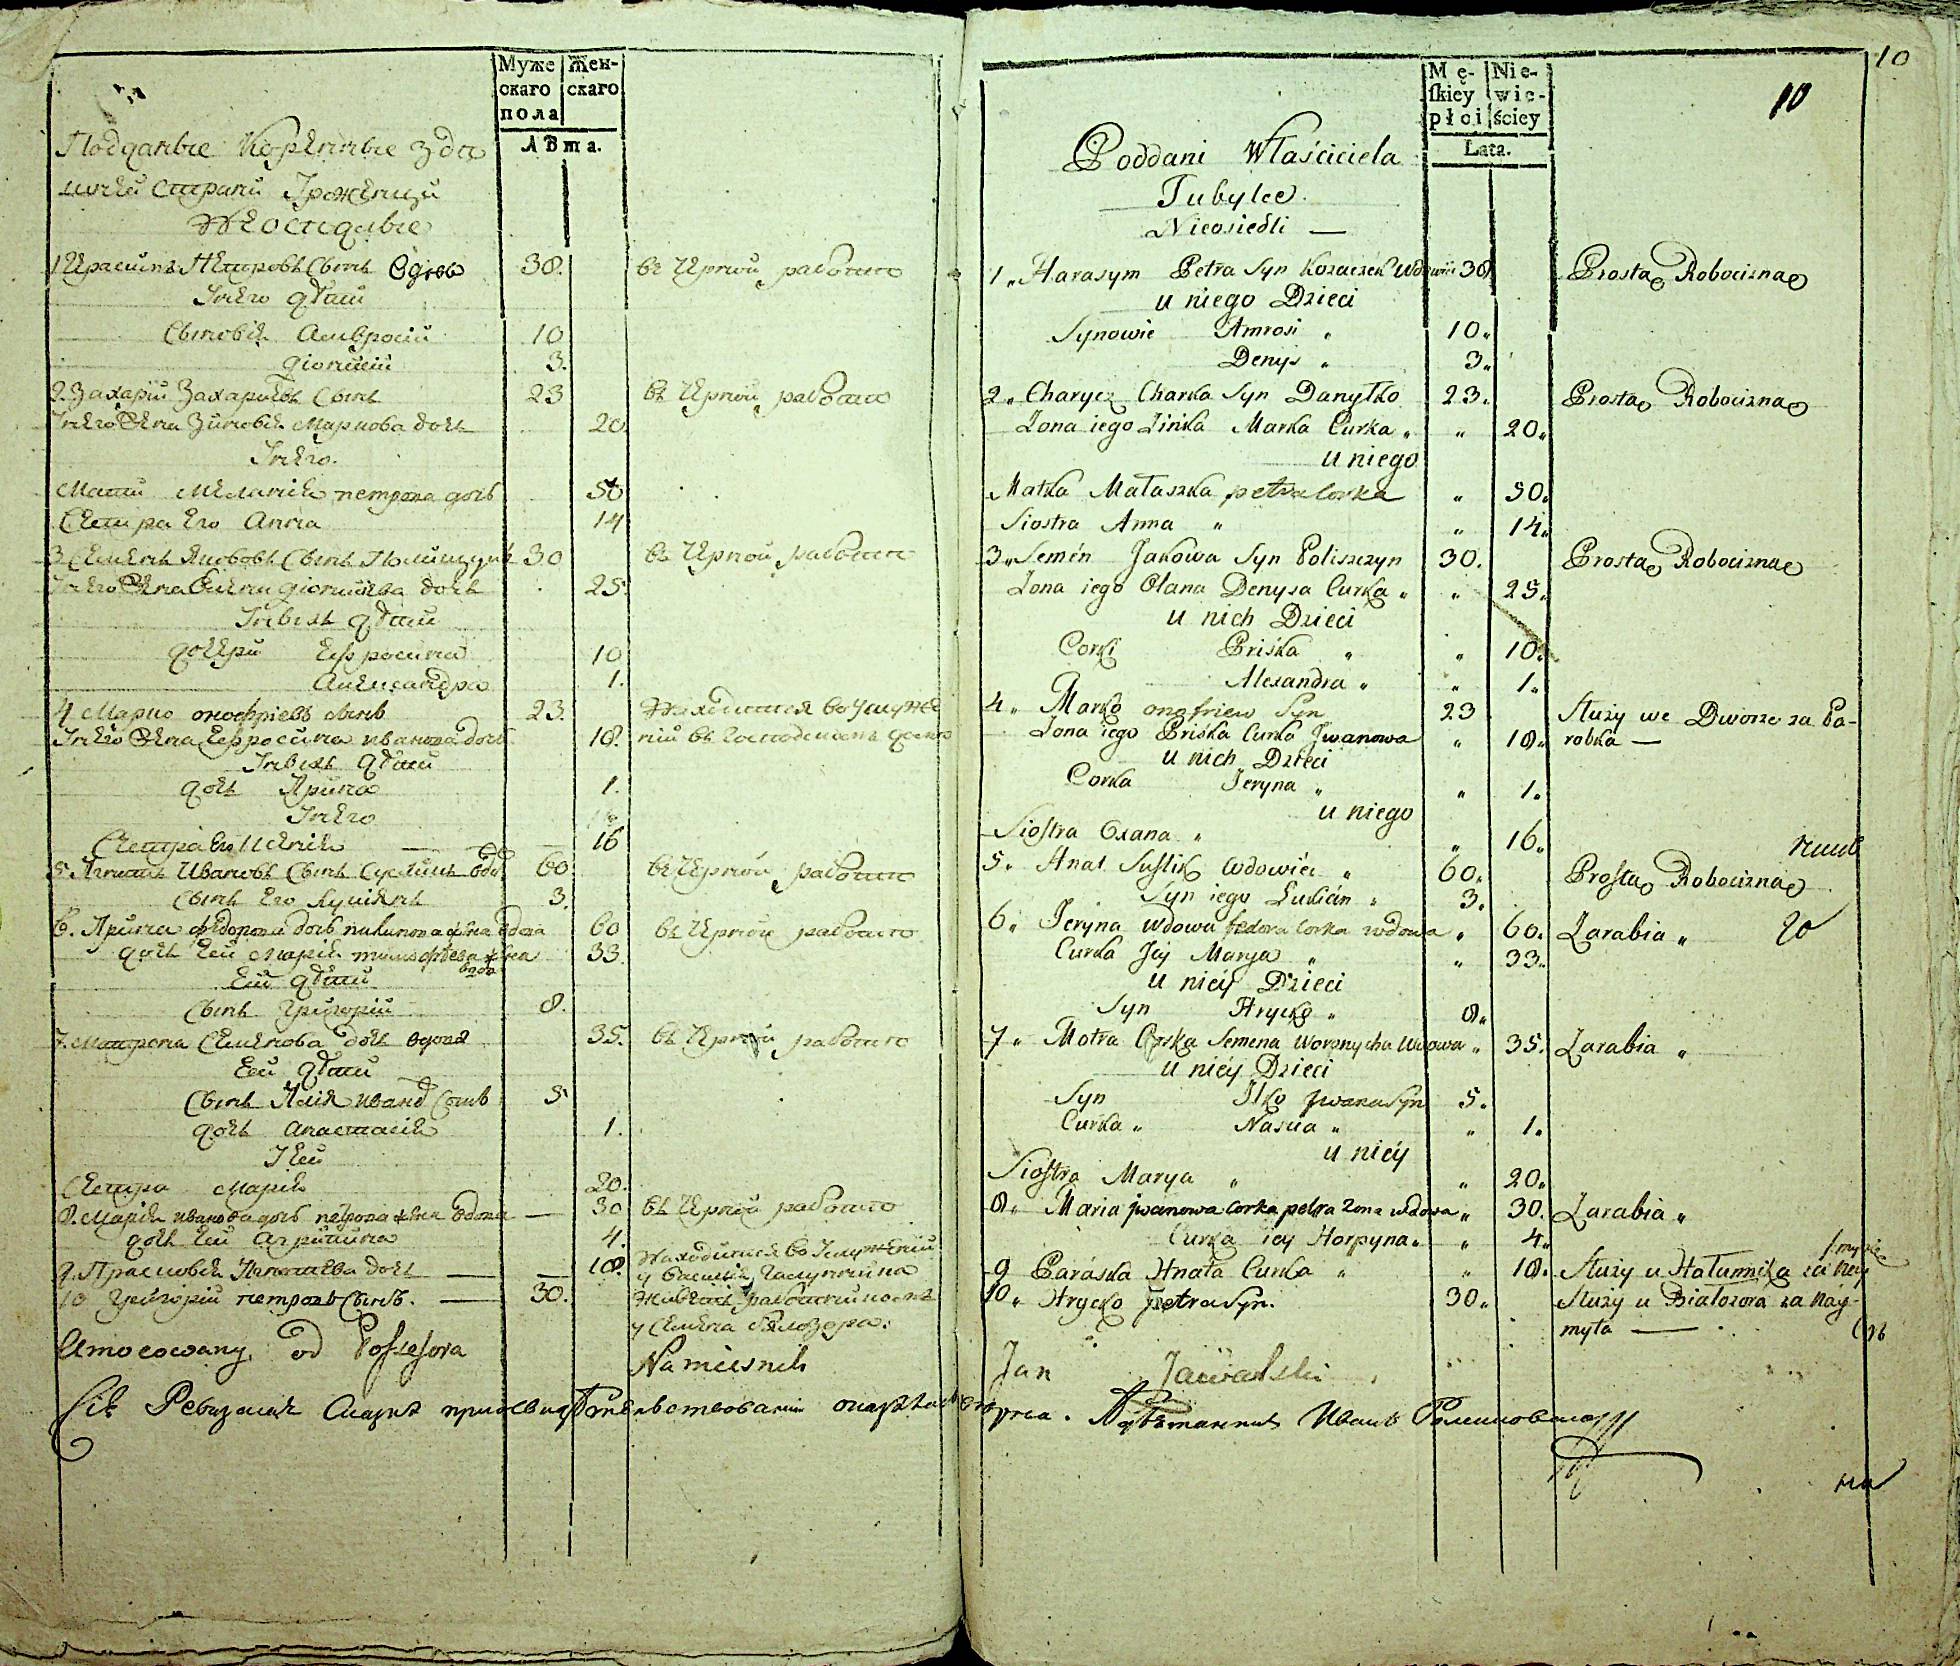 Муже
скаго
пола
Жен-
скаго
Лѣта.
Подданые Коренные зда
шней страны Іроженцы
Неоседлые
1 Герасимъ Петровъ Сынъ вдовъ 38. въ Черной работе
Унего дѣти
Сыновья Амвросий 10
Дионисий 3.
2. Захарий Захариевъ Сынъ 23 въ Черной работе
Унего Жена Зиновья Маркова дочь 20.
Унего.
Мати Мелания петрова дочь 50
Сестра Его Анна 14
3 Семенъ Яковъ Сынъ Полищукъ 30 въ Черной работе
Унего Жена Елена Дионисиева дочь 25
Унихъ дѣти
дочери Ефросина 10
Александра 1.
4 Марко онофриевъ сынъ 23. Находится во услуже
Унего Жена Ефросина иванова дочь 18. нии въ Господскомъ доме
Унихъ дѣти
дочь Ярина 1.
Унего
Сестра Его Ксения 16
5 Игнатъ Ивановъ Сынъ Сусликъ вдо. 60. въ Черной работе
Сынъ Его Лукиянъ 3.
6. Ярина федорова дочь жена вдова 60 въ Черной работе
дочь Еей Мария тимофеева жена 33.
вдова
Ей дѣти
Сынъ Григорий 8.
7. Матрона Семенова дочь вдова 35. въ Черной работе
Ей дѣти
Сынъ Илия Сынъ 5
дочь Анастасия 1.
Уей
Сестра Мария 20.
8. Мария иванова дочь петрова жена вдова — 30 въ Черной работе
дочь Еей Агрипина 4.
9. Прасковья Игнатиева дочь — 18. Находится во Услужении
у
10 Григорий петровъ Сынъ. — 30. Живетъ
у Семена Бялозора.
Umocowany od Possesora Namiesnik
Jan Jaworski
Męskiey
płci
Niewieściey
Lata.
10
10
Poddani Właściciela
Tubylce.
Nieosiedli —
1„ Harasym Petra Syn Kozaczek Wdowiec 38 Prosta Robocizna
u niego Dzieci
Synowie Amrosi „ 10„
Denys „ 3„
2„ Charycz Charka Syn Danyłko 23„ Prosta Robocizna
Zona iego Zinka Marka Curka „ „ 20„
u niego
Matka Małaszka petra Corka „ 50„
Siostra Anna „ „ 14„
3„ Semén Jakowa Syn Poliszczyn 30. Prosta Robocizna
Zona iego Olana Denysa Curka „ „ 25„
u nich Dzieci
Corki Priśka „ „ 10„
Alexandra „ „ 1„
4„ Marko onofriew Syn 23 Służy we Dworze za Pa-
robka —
Zona iego Priśka Curka Jwanowa „ 18„
u nich Dzieci
Corka Jeryna „ „ 1„
u niego
Siostra Oxana „ „ 16„
5„ Hnat Suslik Wdowiec „ 60„ Prosta Robocizna
Syn iego Łukian „ 3„
6„ Jeryna Wdowa fedora corka wdowa „ 60„ Zarabia „ 20
Curka Jey Marya „ „ 33„
u niey Dzieci
Syn Hrycko „ 8„
7„ Motra Corka Semena Woronycha Wdowa „ 35. Zarabia „
u niey Dzieci
Syn Ilko Jwana Syn 5„
Curka „ Nastia „ „ 1„
u niey
Siostra Marya „ „ 20„
8„ Maria jwanowa Corka petra zona wdowa „ 30. Zarabia „
Curka iey Horpyna „ „ 4„
9 Paraska Hnata Curka „ „ 18„ Służy u za Nay-
mycke
10„ Hrycko petra Syn. 30„ Służy u Białozora za Nay-
myta —